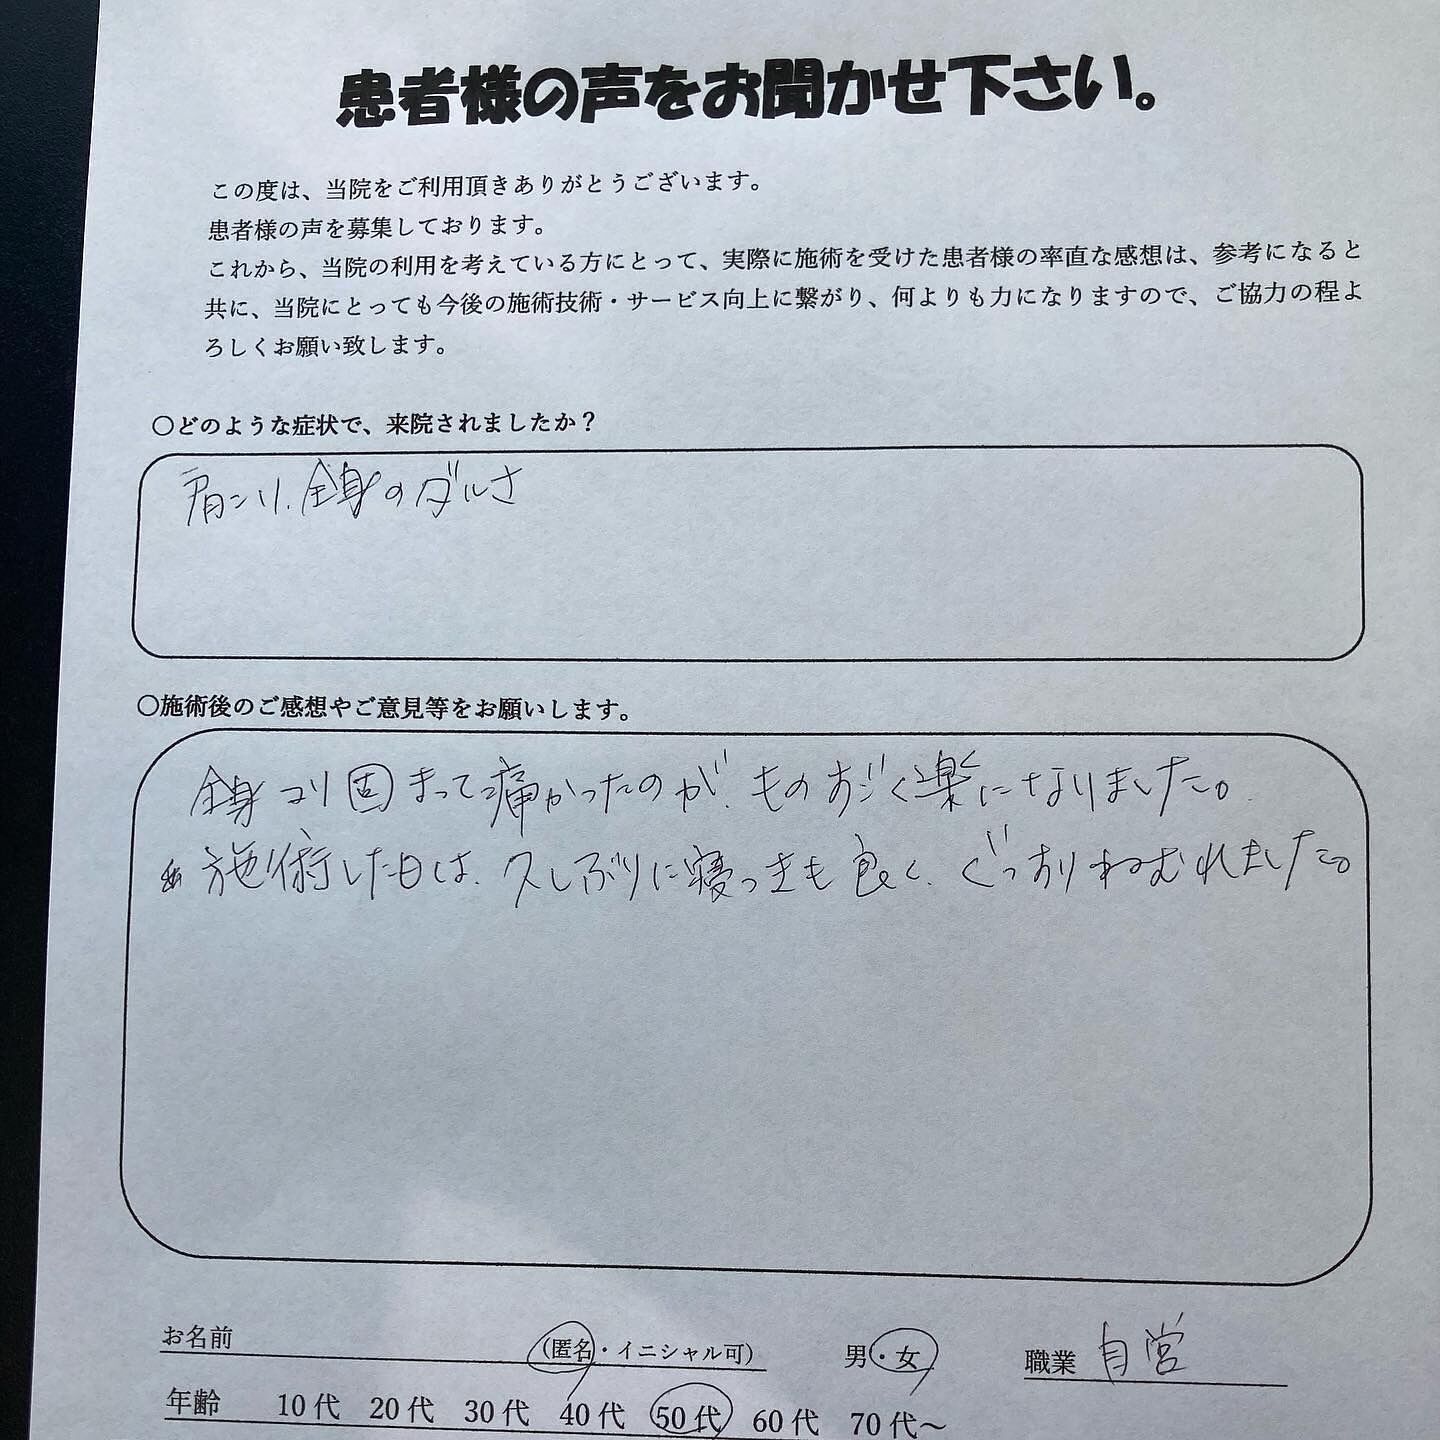 患者様の声をお聞かせ下さい。
この度は、当院をご利用頂きありがとうございます。
患者様の声を募集しております。
これから、当院の利用を考えている方にとって、実際に施術を受けた患者様の率直な感想は、参考になると
共に、当院にとっても今後の施術技術・サービス向上に繋がり、何よりも力になりますので、ご協力の程よ
ろしくお願い致します。
〇どのような症状で、来院されましたか？
肩こり、全身のダルさ
〇施術後のご感想やご意見等をお願いします。
全身コリ固まって痛かったのが、ものすごく楽になりました。
施術した日は、久しぶりに寝つきも良く、ぐっすりねむれました。
お名前 (匿名・イニシャル可) 男・女 職業 自営
年齢 10代 20代 30代 40代 50代 60代 70代～